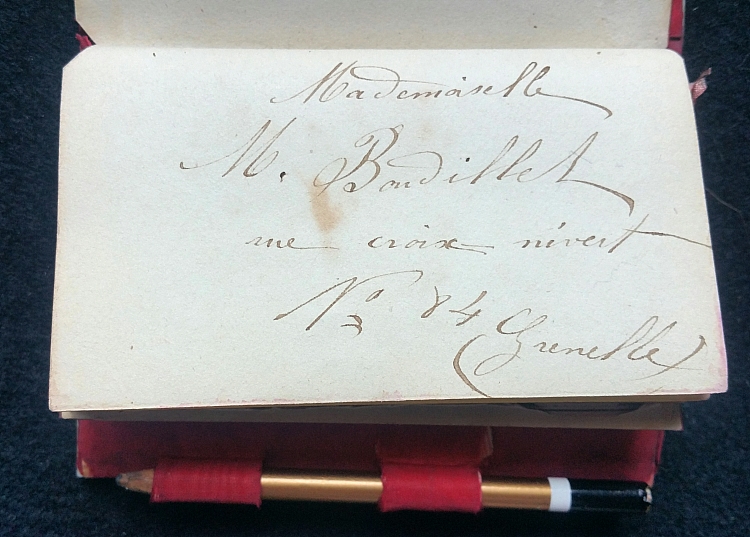 Mademoiselle
M. Boudillet
rue croix nivert
No 84 (Grenelle)